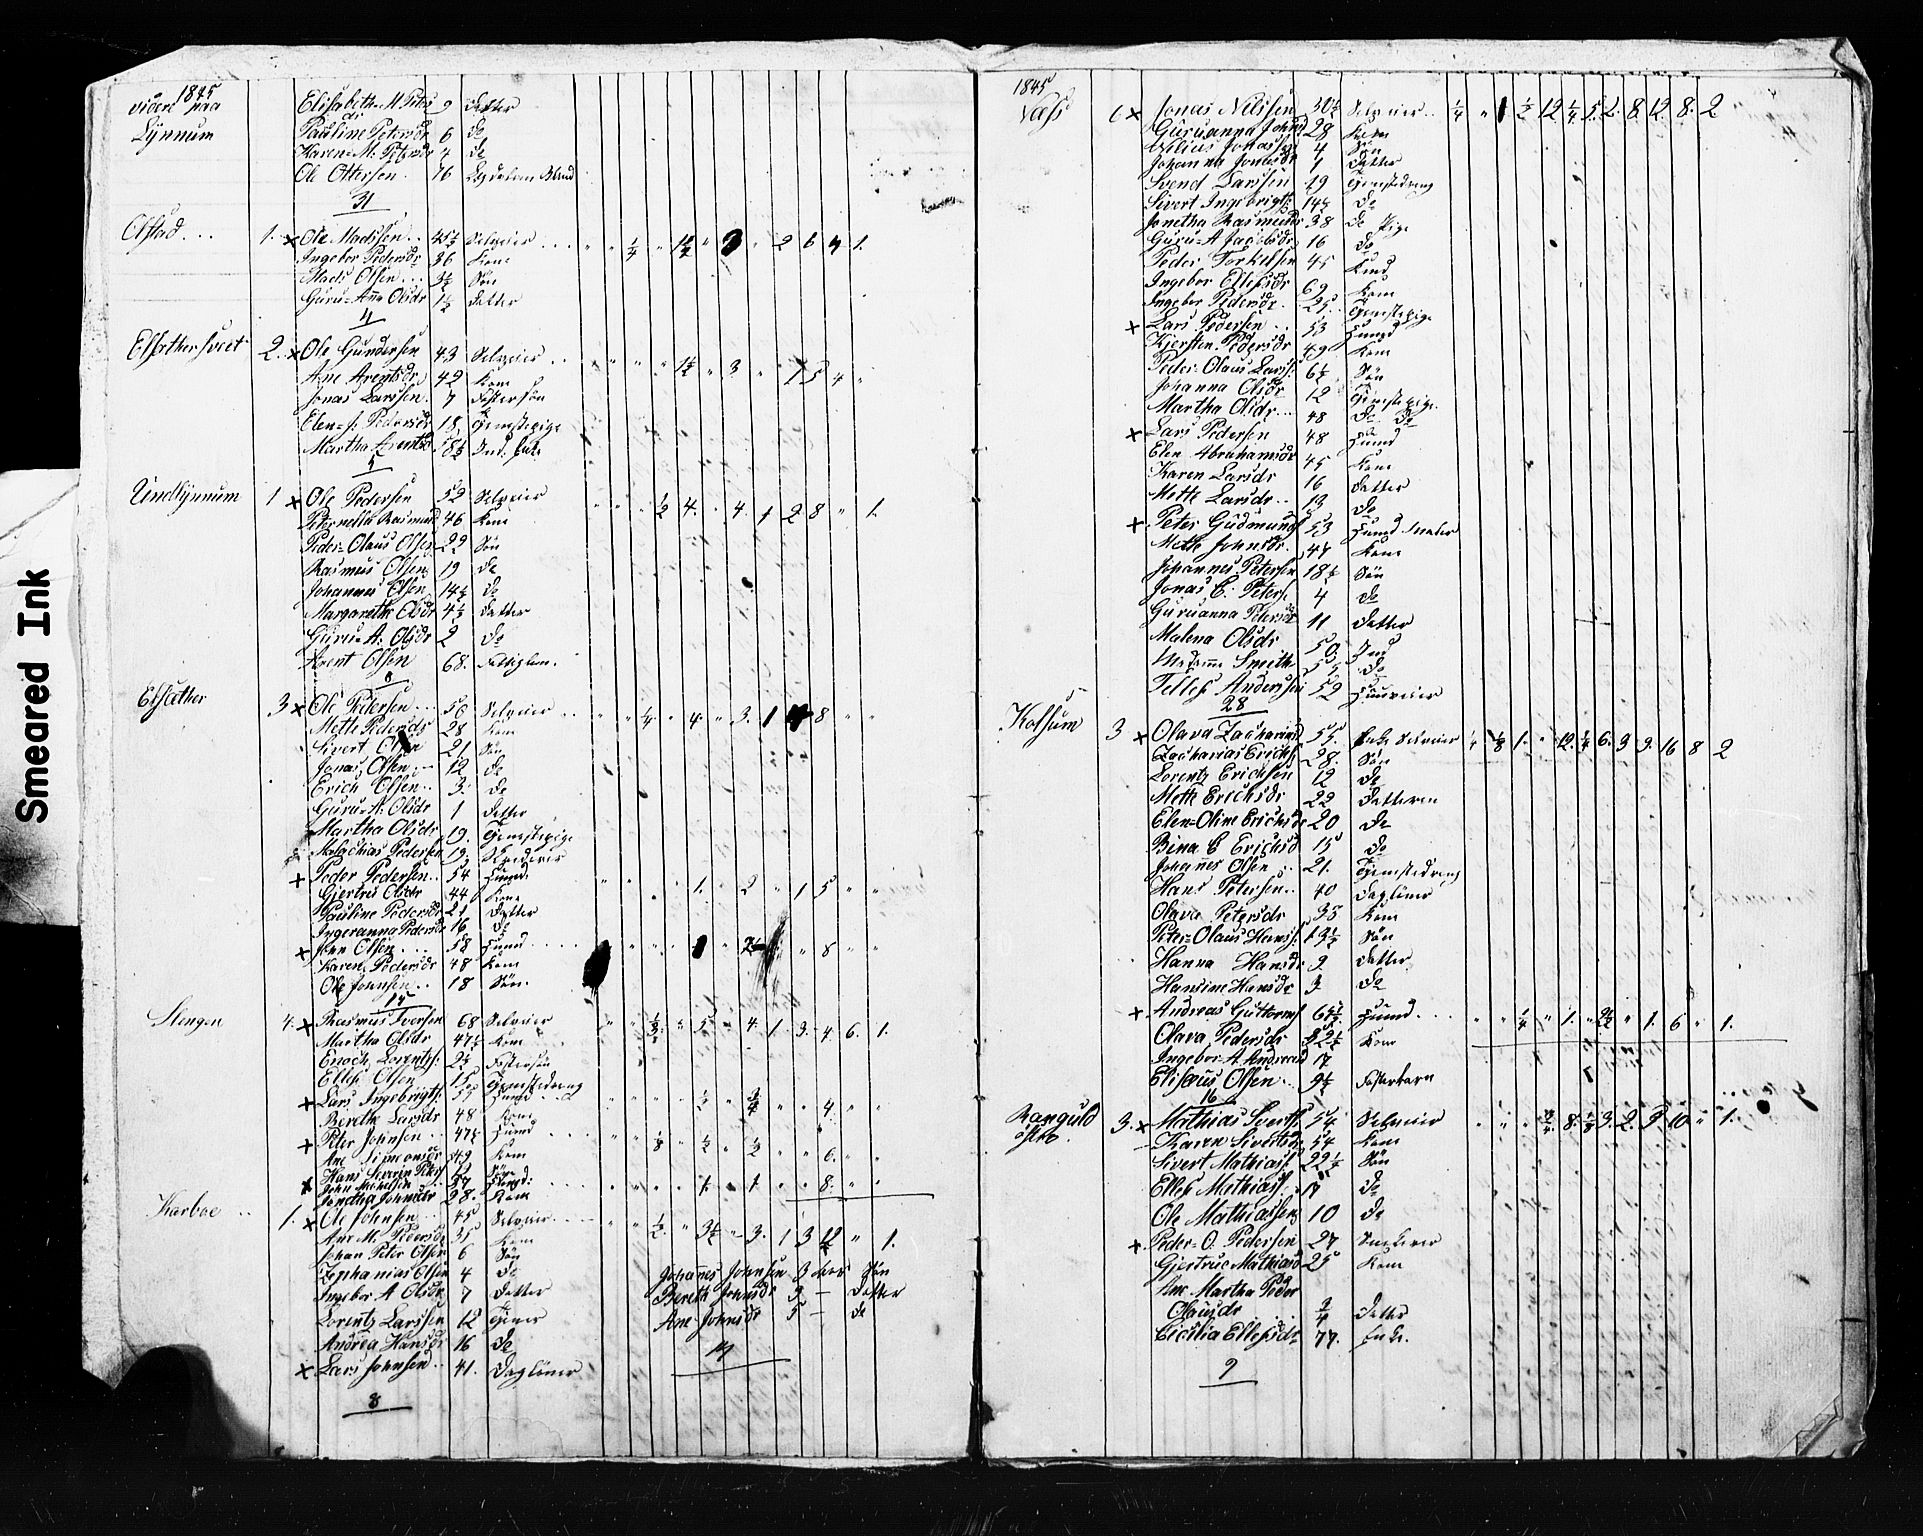 Smeared Ink
1845
videre paa Elisabeth M. Peters 9 Datter
Lynnum dr
Pauline Petersdr 6 do
Karen M. Petersdr 4 do
Ole Ottersen 76
31
Olstad 1. x Ole Madssen 45½ Selveier " " ¼ " 1½ " 3 " 2 6 4 1.
Ingebor Pedersdr 36 Kone
Mads Olsen 3½ Søn
Guru-Ana Olsdr 1½ Datter
4
2. x Ole Gundersen 43 Selveier " " " " 1½ " 3 " 1 5 4 "
Ane Arentsdr 42 Kone
Jonas Larssen 7 Fostersøn
Elen Pedersdr 18 Tjenstepige
Martha Arentsd 78½ Ind.
5
Undlynnum 1 x Ole Pedersen 52 Selveier " " " ½ 4. " 4. 1 2 8 " 1.
Peternella Rasmusd 46 Kone
Peder-Olaus Olsen 22 Søn
Rasmus Olsen 19 do
Johannes Olsen 14½ do
Margarethe Olsdr 4½ Datter
Guru-A. Olsdr 2 do
Arent Olsen 68. Fattiglem.
8
Elsæther 3 x Ole Pedersen 50 Selveier " " ¼ " 4. " 3. 1 8 " "
Mette Pedersdr 28 Kone
Sivert Olsen 21 Søn
Jonas Olsen 12 do
Erich Olsen 3. do
Guru-A. Olsdr 1 Datter
Martha Olsdr 19. Tjenstepige
Malachias Pedersen 19.
+ Peder Pedersen 54 Huusmd. " " " " 1. " 2 " 1 5 " "
Gjertru Olsdr 44 Kone
Pauline Pedersdr 21 Datter
Ingeranna Pedersdr 16 do
+ John Olsen 58 Huusmd " " " " 1 " 8 " "
Karen Pedersdr 48 Kone
Ole Johnsen 18 Søn.
15
Stengen 4. + Rasmus Iversen 68 Selveier " " ½ " 5 " 4. 1. 3. 4 6. 1.
Martha Olsdr 47½ Kone
Enoch Lorents: 2½ Fostersøn
Ellef Olsen 15 Tjenstedreng
+ Lars Ingebrigts: 57 Huusmd " " " " ½ " ¾ " " 4. " "
Bereth Larsdr 48 Kone
+ Peter Johnsen 47½ Huusmd " " ⅛ " ½ " ½ " " 6. " "
Ane Simonsdr 49 Kone
Hans Severin Peters 12 Søn
x John Michelsen 37 Huusmd: " " " " 1. " 1. " " 8. " "
Jonetha Johnsdr 28. Kone
Karboe 1. + Ole Johnsen 45 Selveier " " ½ " 3½ " 3. 1 3 12 " 1.
Ane M. Pedersdr 35 Kone
Johan Peter Olsen 6 Søn
Zephanias Olsen 4 do Johannes Johnsen 3 Søn
Ingebor A Olsdr 7 Datter Bereth Johnsdr 9 — Datter
Lorents Larssen 12 Tjener Ane Johnsdr 5 — do
Andrea Hansdr 16 do
14
x Lars Johnsen 41. Dagløner
8
1845
Næss 6 x Jonas Nilssen 30½ Selveier ¼ " 1 ½ 12 ¼ 5. 2. 8 12 8. 2
Guruanna Johnsd 28 Kone
Nilius Jonassen 4 Søn
Johanna Jonasdr 1 Datter
Svend Larssen 19 Tjenstedreng
Sivert Ingebrigts: 14½ do
Jonetha Rasmusdr 38 do Pige
Guru-A Jacobsdr 16 do
Peder Torkilsen 45
Ingebor Ellefsdr 69 Kone
Ingebor Pedersdr 25 Tjenstepige
+ Lars Pedersen 53 Huusmd
Kjersten Pedersdr 49 Kone
Peder Olaus Larss: 6½ Søn
Johanna Olsdr 12 Tjenstepige
Martha Olsdr 48 do do
+ Lars Pedersen 48 Huusmd
Elen Abrahamsdr 45 Kone
Karen Larsdr 16 Datter
Mette Larsdr 13 do
+ Peter Gudmunds 53 Huusmd
Mette Johnsdr 47 Kone
Johannes Petersen 18½ Søn
Jonas C. Peters. 4 do
Guruanna Petersdr 11 Datter
Malena Olsdr 50 Ind
Madame Smith 55 do
Tellef Anderssen 52
28
Kolsum 3 x Olava Zachariasd 55. Enke Selveier ¼ ⅛ 1. " 12. ¼ 6. 3 9. 16 8 2
Zacharias Erichs 28. Søn
Lorents Erichsen 12 do
Mette Erichsdr 22 Datteren
Elen-Oline Erichsdr 20 do
Bina C Erichsd 15 do
Johannes Olsen 21. Tjenstedreng
Hans Petersen 40 Dagløner
Olava Petersdr 35 Kone
Peter-Olaus Hanss: 13½ Søn
Hanna Hansdr 9. Datter
Hansine Hansdr 3 do
+ Andreas Guttorms 65½ Huusmd " " ¼ " 1. " 2½ " 1. 6 " 1.
Olava Pedersdr 52½ Kone
Ingebor A. Andreasd 17
Elisæus Olsen 9½ Fosterbarn
16
Ranguld 3. x Mathias Siverts 54 Selveier " " " ¼ 8. ⅛ 3. 2. 9 10 " 1.
østre Karen Sivertsdr 54 Kone
Sivert Mathiass. 22½ Søn
Ellef Mathiass. 17 do
Ole Mathiassen 10 do
+ Peder-O. Pedersen 27
Gjertrue Mathiasd 25 Kone
Ane Martha Peder
Olausdr ¾ Datter
Cicilia Ellefsdr 77. Enke.
9